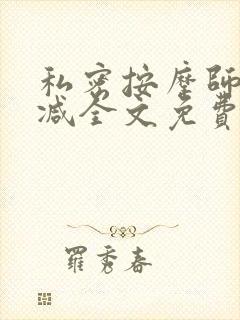 私密按摩師
减全文免費
羅秀春